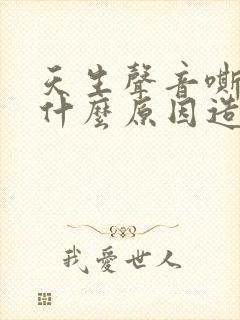 天生聲音嘶
什麼原因造
我愛世人